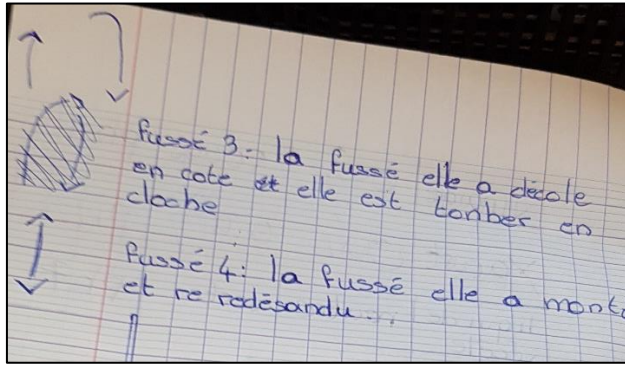 fussé 3: la fussé elle a décole
en cote et elle est tonber en
cloche
fussé 4: la fussé elle a monté
et re redésandu...